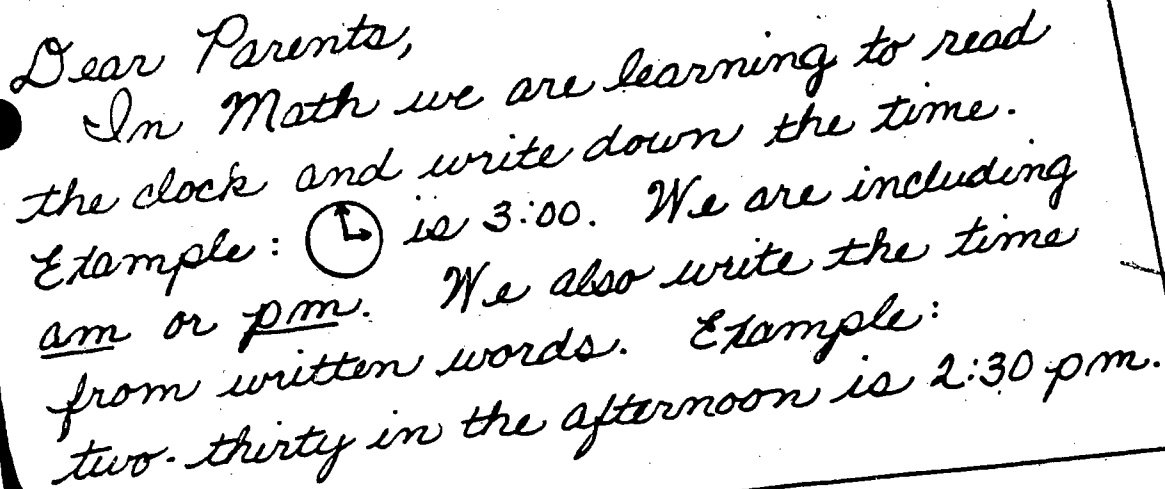 Dear Parents,
In Math we are learning to read
the clock and write down the time.
Example: is 3:00. We are including
am or pm. We also write the time
from written words. Example:
two-thirty in the afternoon is 2:30 pm.